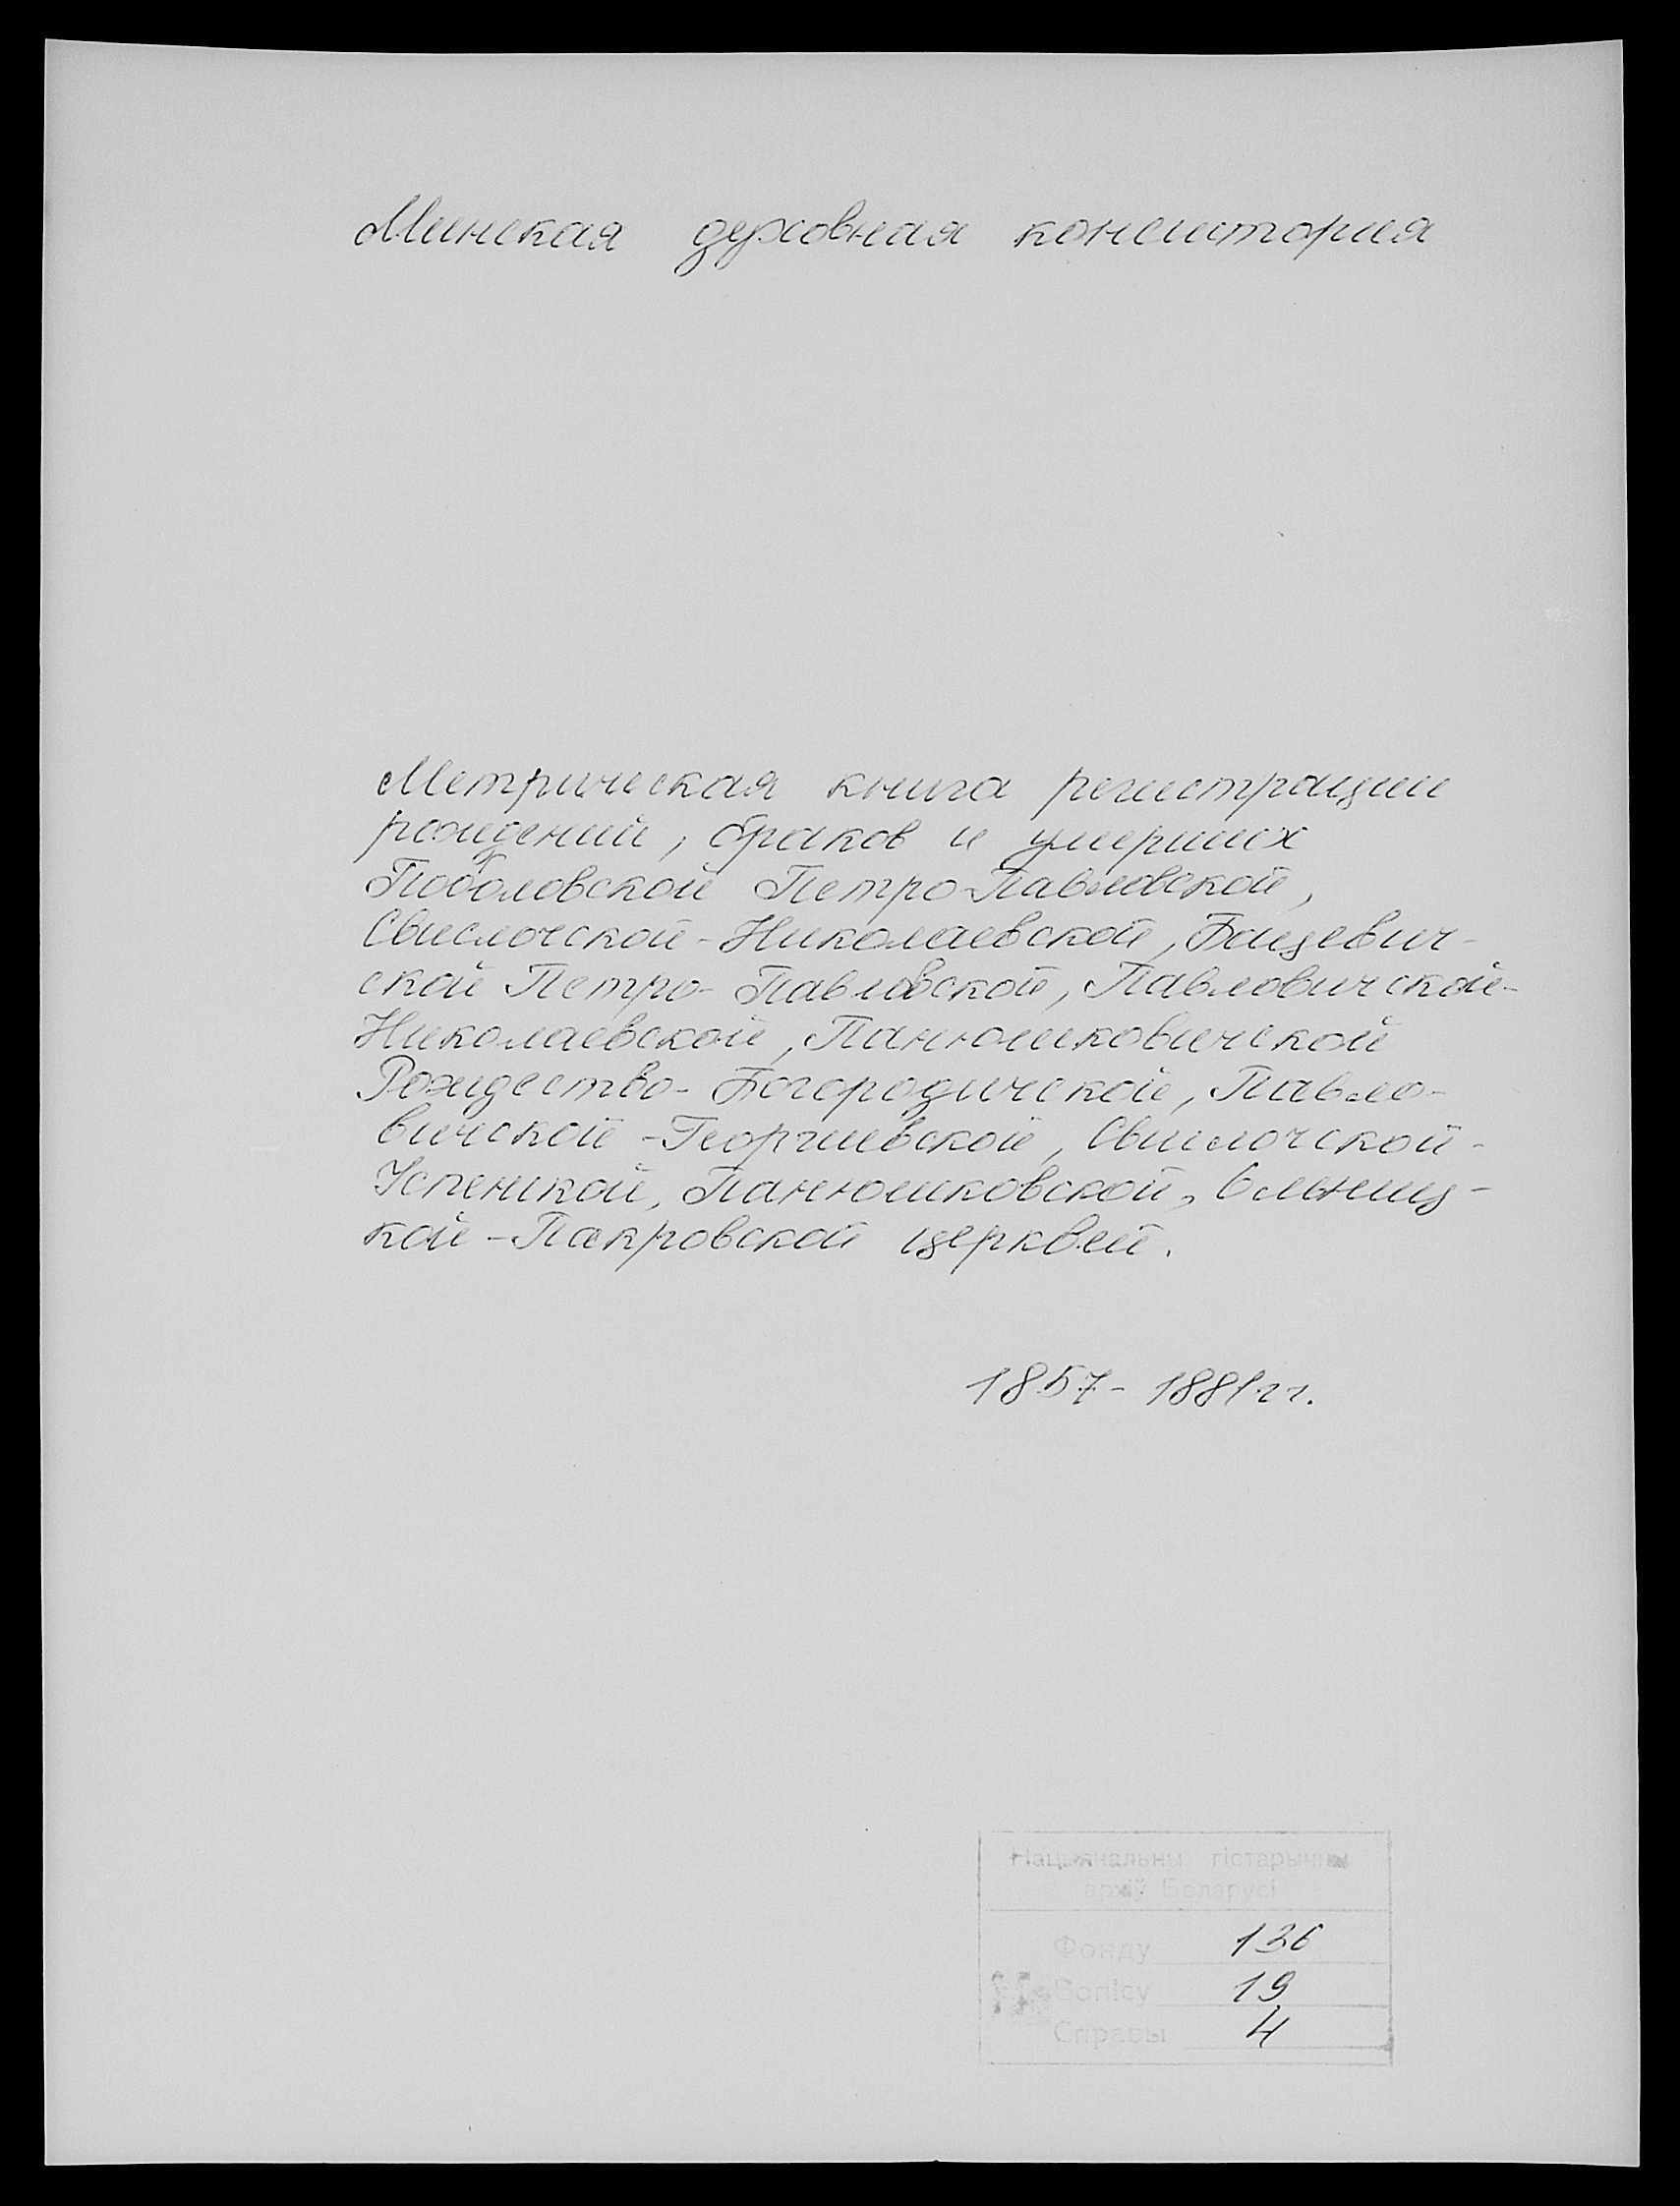 Минская духовная консистория
Метрическая книга регистрации
рождений, браков и умерших
Поболовской Петро-Павловской,
Свислочской-Николаевской, Бацевич-
ской Петро-Павловской, Павловичской-
Николаевской, Панюшковичской
Рождество-Богородичской, Павло-
вичской-Георгиевской, Свислочской-
Успенкой, Панюшковской, Ольниц-
кой-Пакровской церквей.
1857-1881 гг.
Нацыянальны гістарычны
архіў Беларусі
Фонду 136
Вопісу 19
Справы 4